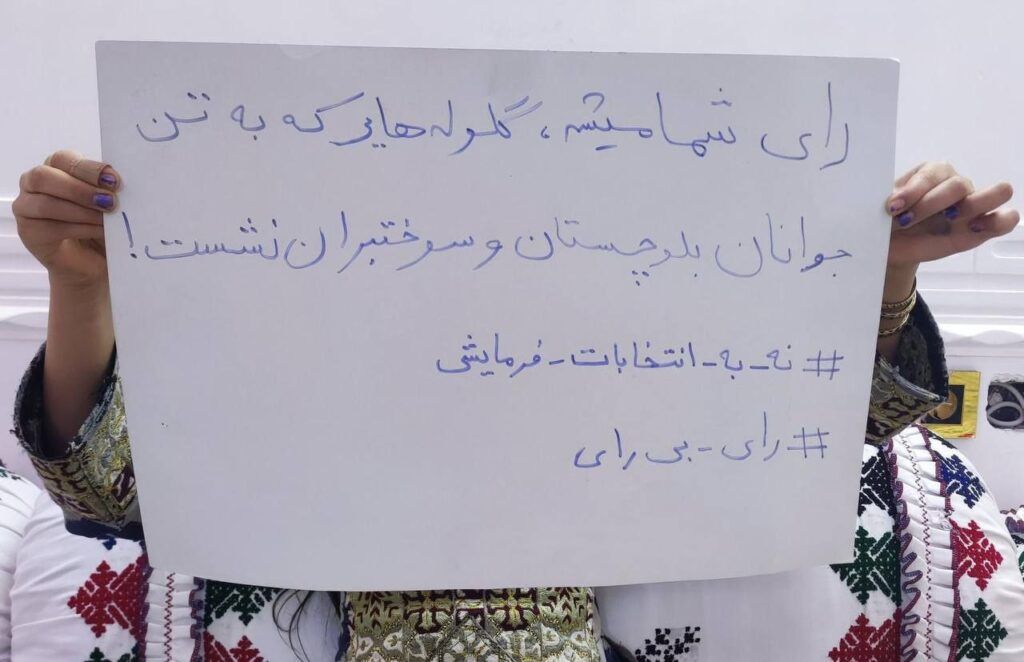 رای شما میشه، گلوله‌هایی که به تن
جوانان بلوچستان و سوختبران نشست!
#نه-به-انتخابات-فرمایشی
#رای-بی رای